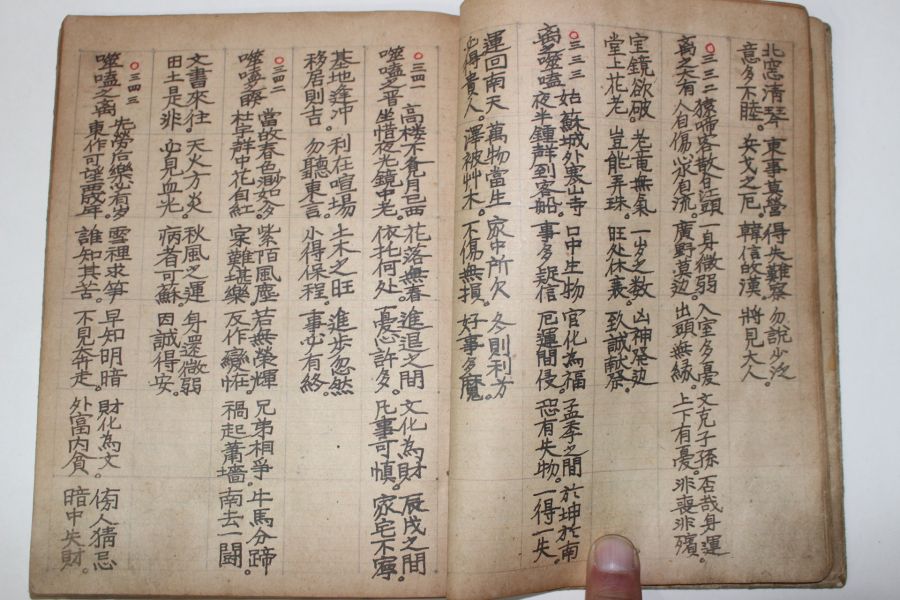 北窓清琴
意多不睦。
東事莫營
矢戈之厄。
得失難察
韓信故漢。
勿說少泛
將見大人。
○三三二
离之大有
猿啼客散白江頭
人自傷心水自流。
一身微弱
廣野莫边
入室多憂
出頭無緣。
文克子孫
上下有憂。
否哉身運
非喪非殯。
宝鏡欲破
堂上花老。
老竜無氣
豈能弄珠。
一岁之数
旺处休衰。
凶神發边
致誠献祭。
○三三三
离之噬嗑
姑蘇城外寒山寺
夜半鍾群到客船。
口中生物
事多疑信
官化為福
厄運間侵。
孟季之間
恐有失物。
於坤於南
一得一失
運回南天
必得貴人。
萬物當生
澤被艸木。
家中所欠
不傷無損。
冬則利方
好事多魔
○三四一
噬嗑之晋
高楼不覓月已西
坐惜夜光鏡中老。
花落無春
依托何处
進退之間
憂心許多。
文化為財
凡事可慎。
辰戌之間
家宅不寧。
基地逢冲
移居則吉。
利在喧場
勿聽東言。
土木之旺
小得保程。
進步忽然
事必有終。
○三四二
噬嗑之睽
當故春色渺如夕
杜宇群中花自紅。
紫陌風塵
家難甚樂
若無榮輝
反作變怪。
兄弟相爭
禍起蕭墻
牛馬分蹄
南去一鬪。
文書來往
田土是非。
天火方炎
必見血光。
秋風之運
病者可蘇。
身還微弱
因誠得安。
○三四三
噬嗑之离
先勞后樂必有岁
東作可望西成年。
雪裡求笋
誰知其苦。
早知明暗
不見奔走。
財化為文
外富内貧
傍人猜忌
暗中失財。